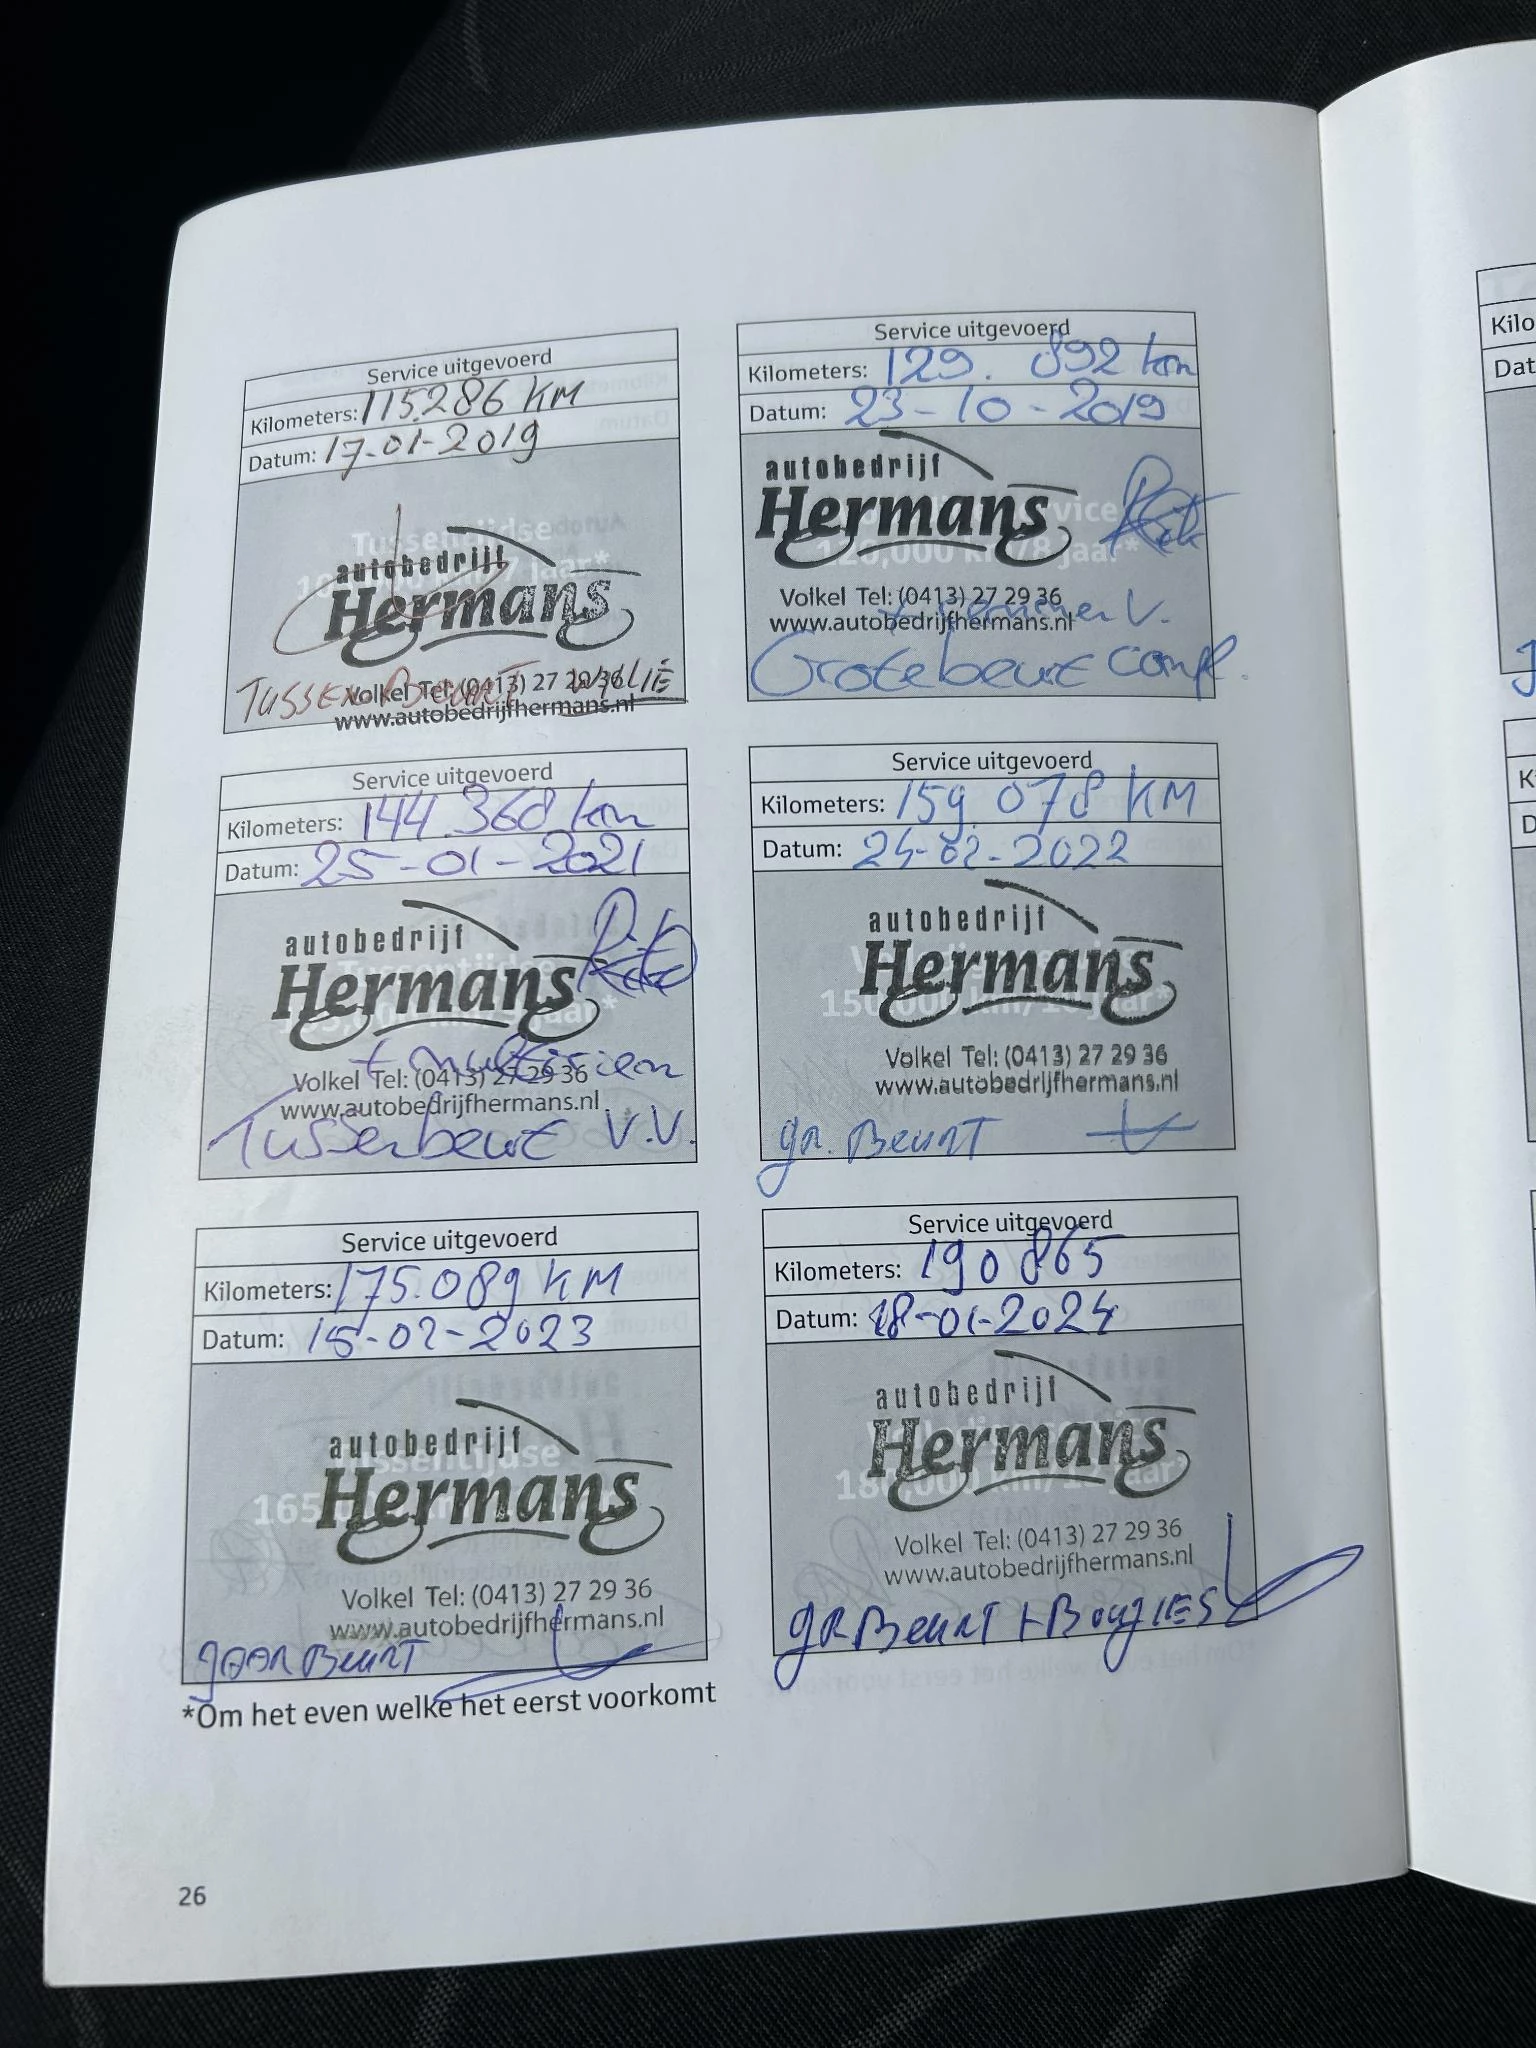 Service uitgevoerd
Kilometers: 115.286 KM
Datum: 17-01-2019
Tussentijdse
jaar*
autobedrijf
Hermans
Volkel Tel: (0413) 27 29 36
www.autobedrijfhermans.nl
TUSSEN BEURT
Service uitgevoerd
Kilometers: 129.892 km
Datum: 23-10-2019
autobedrijf
Hermans
120,000 km/8 jaar*
Volkel Tel: (0413) 27 29 36
www.autobedrijfhermans.nl
Grote beurt compl.
Service uitgevoerd
Kilometers: 144.368 km
Datum: 25-01-2021
autobedrijf
Hermans
Volkel Tel: (0413) 27 29 36
www.autobedrijfhermans.nl
+ multiriem
Tussenbeurt V.V.
Service uitgevoerd
Kilometers: 159.078 KM
Datum: 24-02-2022
autobedrijf
Hermans
Volkel Tel: (0413) 27 29 36
www.autobedrijfhermans.nl
gr. Beurt
Service uitgevoerd
Kilometers: 175.089 KM
Datum: 15-02-2023
autobedrijf
Tussentijdse
Hermans
Volkel Tel: (0413) 27 29 36
www.autobedrijfhermans.nl
jaar Beurt
Service uitgevoerd
Kilometers: 190 865
Datum: 18-01-2024
autobedrijf
Hermans
Volkel Tel: (0413) 27 29 36
www.autobedrijfhermans.nl
gr Beurt + Bougies
*Om het even welke het eerst voorkomt
26
Kilo
Dat